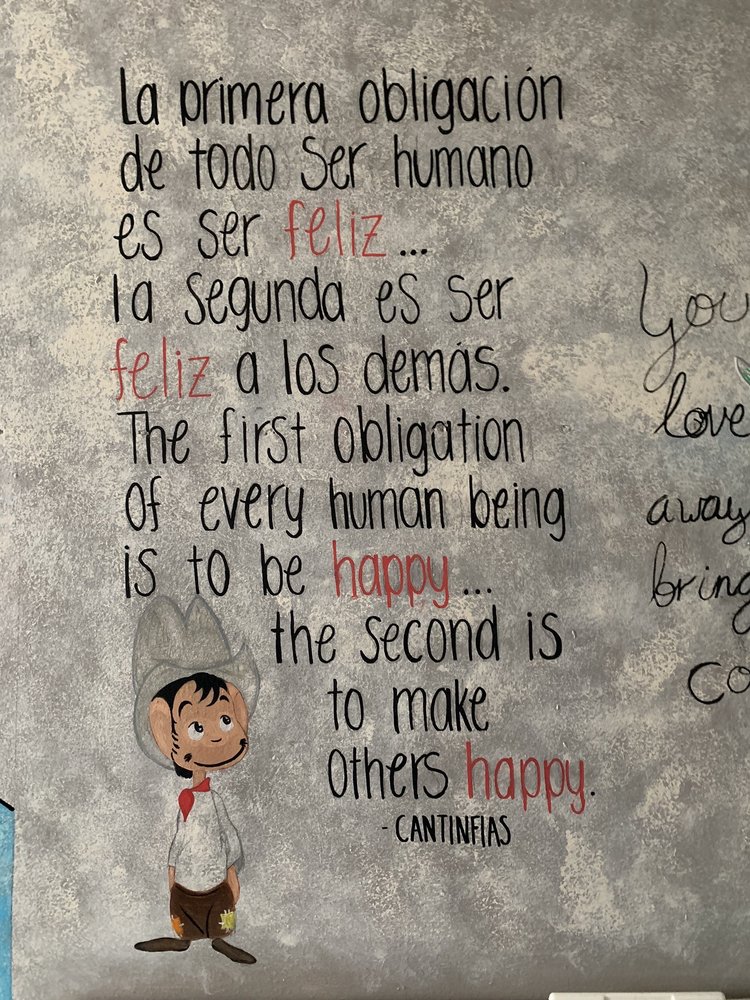 La primera obligación
de todo Ser humano
es ser feliz...
la segunda es ser
feliz a los demás.
The first obligation
Of every human being
is to be happy...
the second is
to make
others happy.
- CANTINFIAS
You
love
away
bring